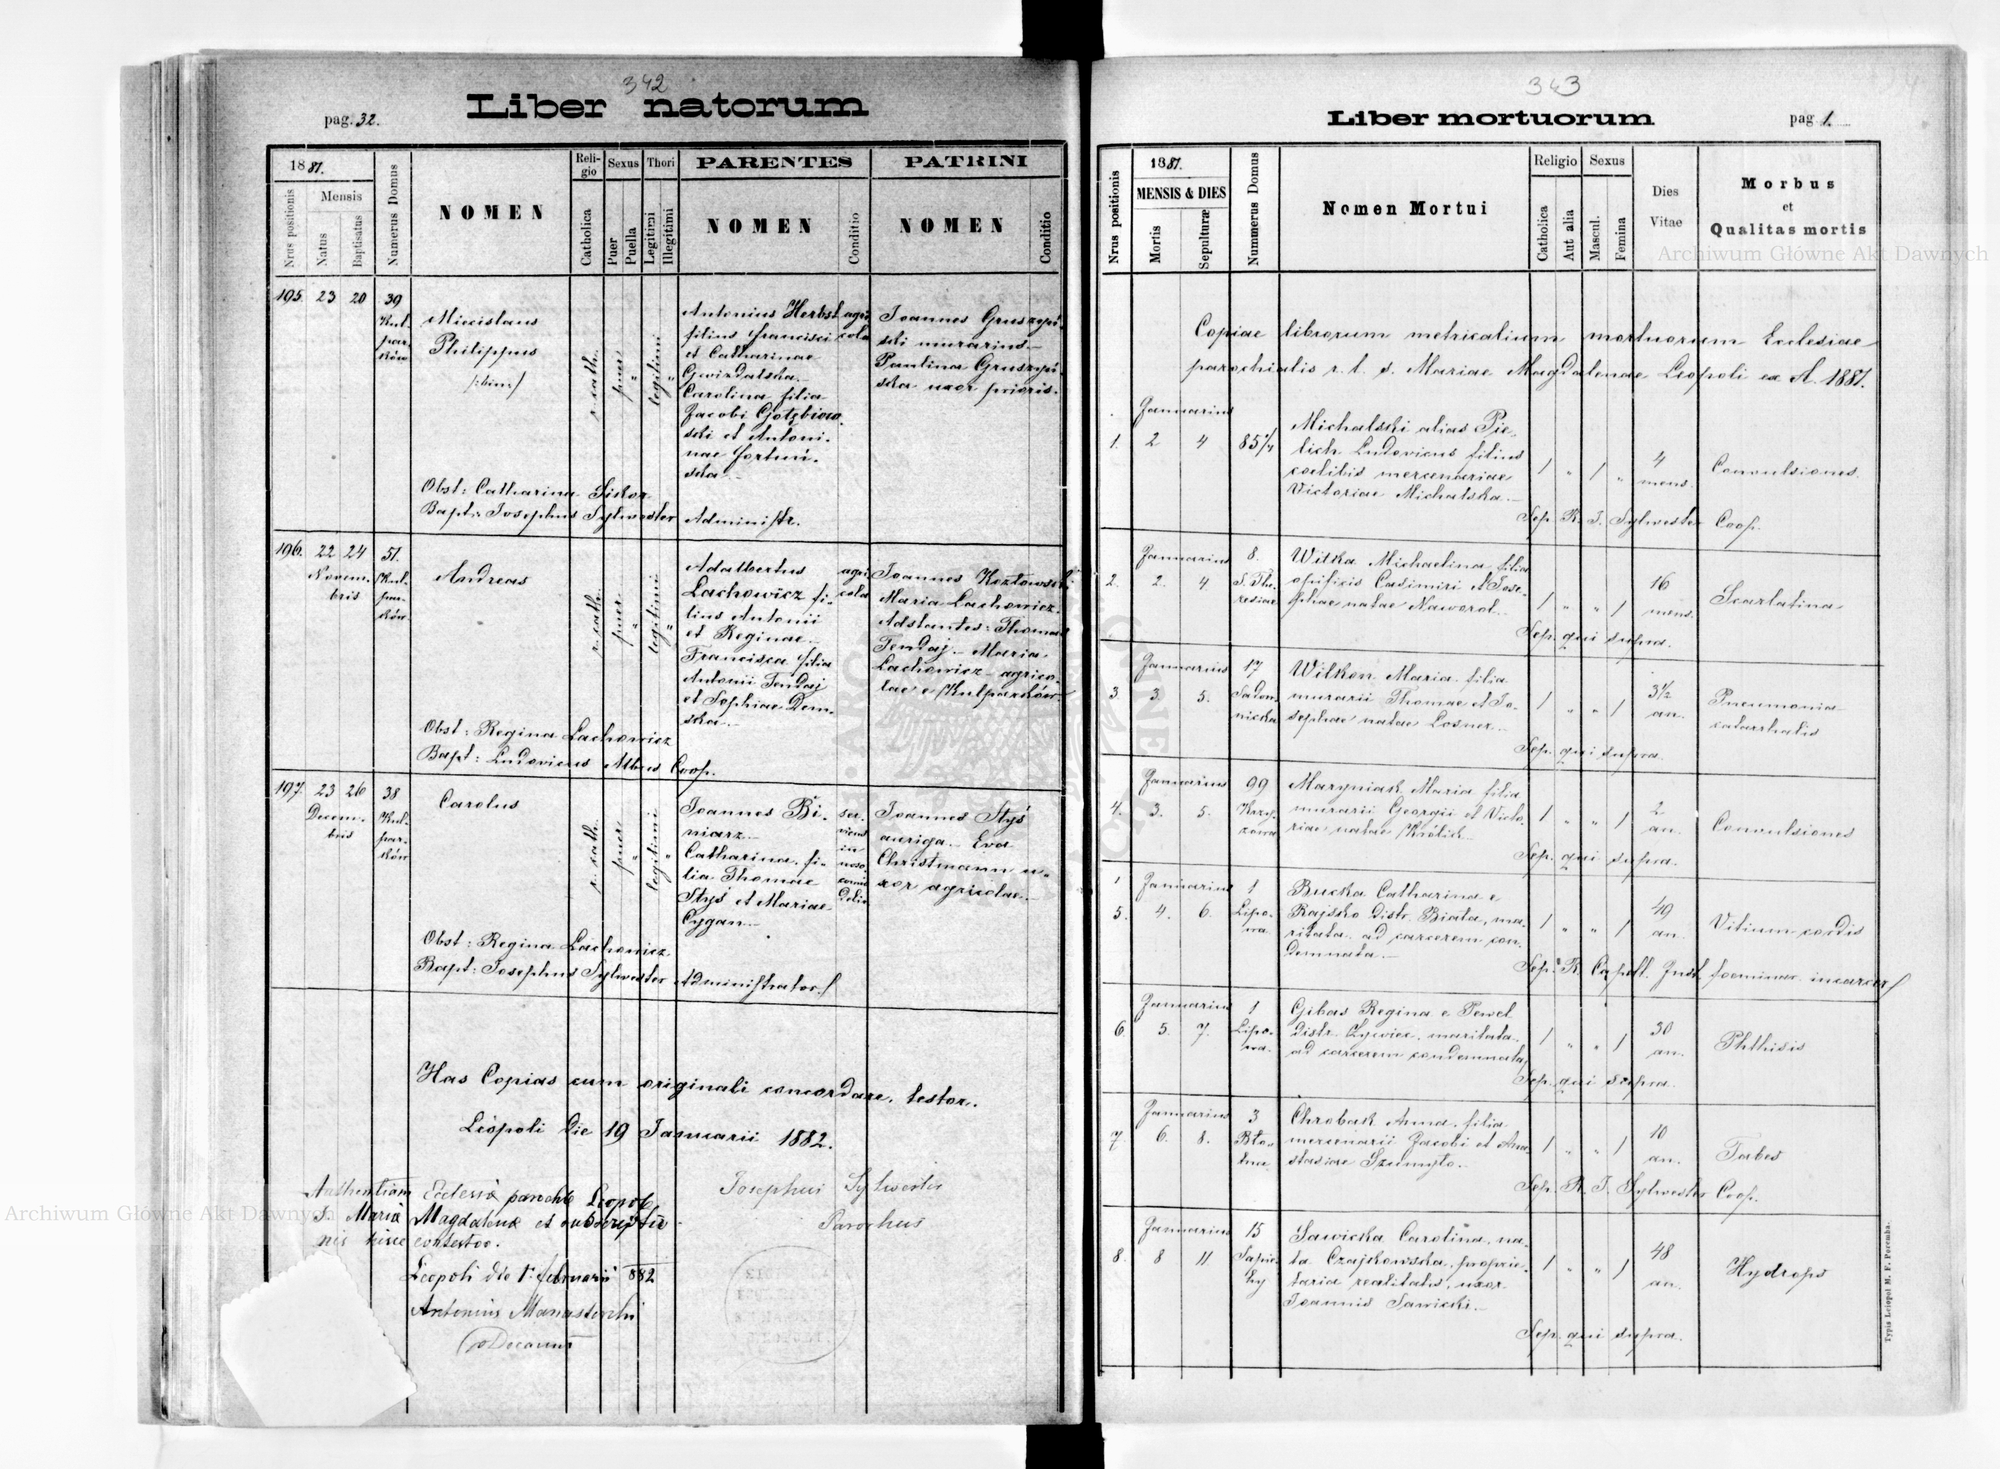 342
Liber natorum
pag. 32.
1881.
Nrus positionis
Mensis
Natus
Baptisatus
Numerus Domus
NOMEN
Reli-
gio
Catholica
Sexus
Puer
Puella
Thori
Legitimi
Illegitimi
PARENTES
NOMEN
Conditio
PATRINI
NOMEN
Conditio
195. 23 20 39
Kul-
par-
ków
Miecislaus
Philippus
/:bim:/
r. cath.
puer
"
legitimi
"
Antonius Herbst
filius Francisci
et Catharinae
Gwizdalska.
Carolina filia
Jacobi Gołębiow
ski et Antoni-
nae
ska.
agri
cola
Joannes Gruszyń-
ski murarius
Paulina Gruszyń-
ska uxor prioris.
Obst: Catharina Sikor
Bapt: Josephus Sylwester Administr.
196. 22 24 51.
Novem-
bris
Kul-
par-
ków
Andreas
r. cath.
puer
"
legitimi
"
Adalbertus
Lachowicz fi-
lius Antonii
et Reginae
Francisca filia
Antonii Tendaj
et Sophiae Dem-
ska.
agri
cola
Joannes Kozłowski
Maria Lachowicz.
Adstantes: Thomas
Tendaj. Maria
Lachowicz agrico-
lae e Kulparków
Obst: Regina Lachowicz
Bapt: Ludovicus Albus Coop.
197. 23 26 38
Decem-
bris
Kul-
par-
ków
Carolus
r. cath.
puer
"
legitimi
"
Joannes Bi-
niarz
Catharina fi-
lia Thomae
Styś et Mariae
Cygan
ser-
viens
in
noso
comio
Joannes Styś
auriga. Eva
Christmann u-
xor agricolae.
Obst: Regina Lachowicz
Bapt: Josephus Sylwester Administrator.
Has Copias cum originali concordare, testor.
Leopoli die 19 Januarii 1882.
Josephus Sylwester
Parochus
Ecclesiæ parochls Leopols
S. Mariæ Magdalenæ et subscriptio
nis contestor.
Leopoli die 1 februarii 882
Antonius Manasterski
Decanus
343
Liber mortuorum
pag 1.
Nrus positionis
1881.
MENSIS & DIES
Mortis
Sepulturæ
Nummerus Domus
Nomen Mortui
Religio
Catholica
Aut alia
Sexus
Mascul.
Femina
Dies
Vitae
Morbus
et
Qualitas mortis
Archiwum Główne Akt Dawnych
Copiae librorum metricalium mortuorum Ecclesiae
parochialis r. l. s. Mariae Magdalenae Leopoli ex A. 1881.
Januarius
1. 2 4 85 1/4
Michalski alias Pie
lich Ludovicus filius
coelibis mercenariae
Victoriae Michalska.
/ " / " 4
mens.
Convulsiones.
Sep. R. J. Sylwester Coop.
Januarius
2. 2. 4 8.
S. The-
resiae
Witka Michaelina filia
opificis Casimiri et Jose-
phae natae Nawrot.
/ " " / 16
mens.
Scarlatina
Sep. qui supra.
Januarius
3 3. 5. 17
Sadow-
nicka
Wilkon Maria filia
murarii Thomae et Jo-
sephae natae Losner.
/ " " / 3 1/2
an.
Pneumonia
catarrhalis
Sep. qui supra.
Januarius
4. 3. 5. 99
Krzy-
żowa
Maryniak Maria filia
murarii Georgii et Victo-
riae natae Królik.
/ " " / 2
an.
Convulsiones
Sep. qui supra.
Januarius
5. 4. 6. 1
Lipo-
wa.
Bucka Catharina e
Rajsko Distr. Biała, ma-
ritata, ad carcerem con-
demnata.
/ " " / 49
an.
Vitium cordis
Sep. R. Capell. Inst. foeminar. incarcer/
Januarius
6 5. 7. 1
Lipo-
wa.
Gibas Regina e Pewel
Distr. Żywiec, maritata,
ad carcerem condemnata/
/ " " / 30
an.
Phthisis
Sep. qui supra.
Januarius
7 6. 8. 3
Bło-
tna
Chrobak Anna filia
mercenarii Jacobi et Ana-
stasiae Szumyło.
/ " " / 10
an.
Tabes
Sep. R. J. Sylwester Coop.
Januarius
8 8 11 15
Sapie-
hy
Sawicka Carolina, na-
ta Czajkowska, proprie-
taria realitatis, uxor
Joannis Sawicki.
/ " " / 48
an.
Hydrops
Sep. qui supra.
Typis Leiopol M. F. Poremba.
Archiwum Główne Akt Dawnych